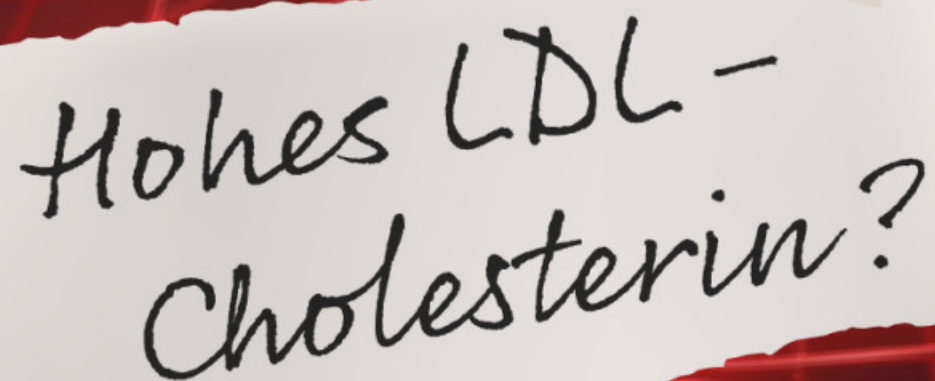 Hohes LDL-
Cholesterin?